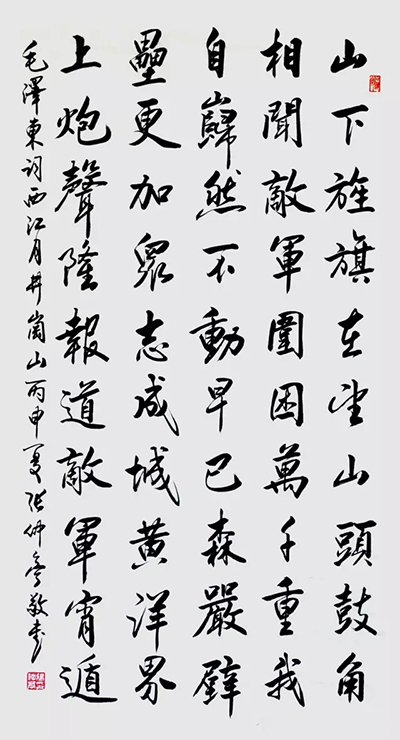 山下旌旗在望山頭鼓角
相聞敵軍圍困萬千重我
自巋然不動早已森嚴壁
壘更加眾志成城黃洋界
上炮聲隆報道敵軍宵遁
毛澤東詞西江月井崗山丙申夏张仲亭敬書